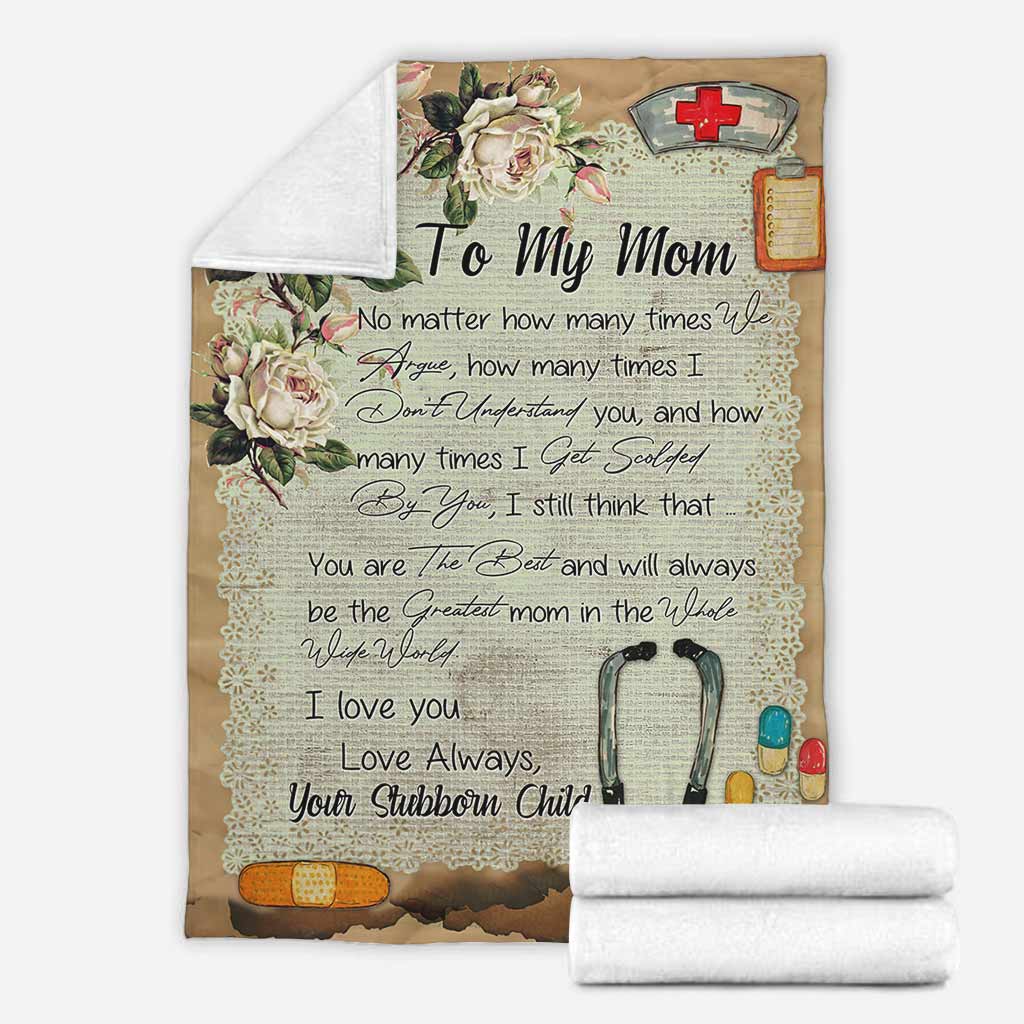 To My Mom
No matter how many times We
Argue, how many times I
Don't Understand you, and how
many times I Get Scolded
By You, I still think that ...
You are The Best and will always
be the Greatest mom in the Whole
Wide World
I love you
Love Always,
Your Stubborn Child